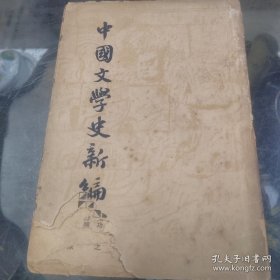 中國文學史新編
孔夫子旧书网